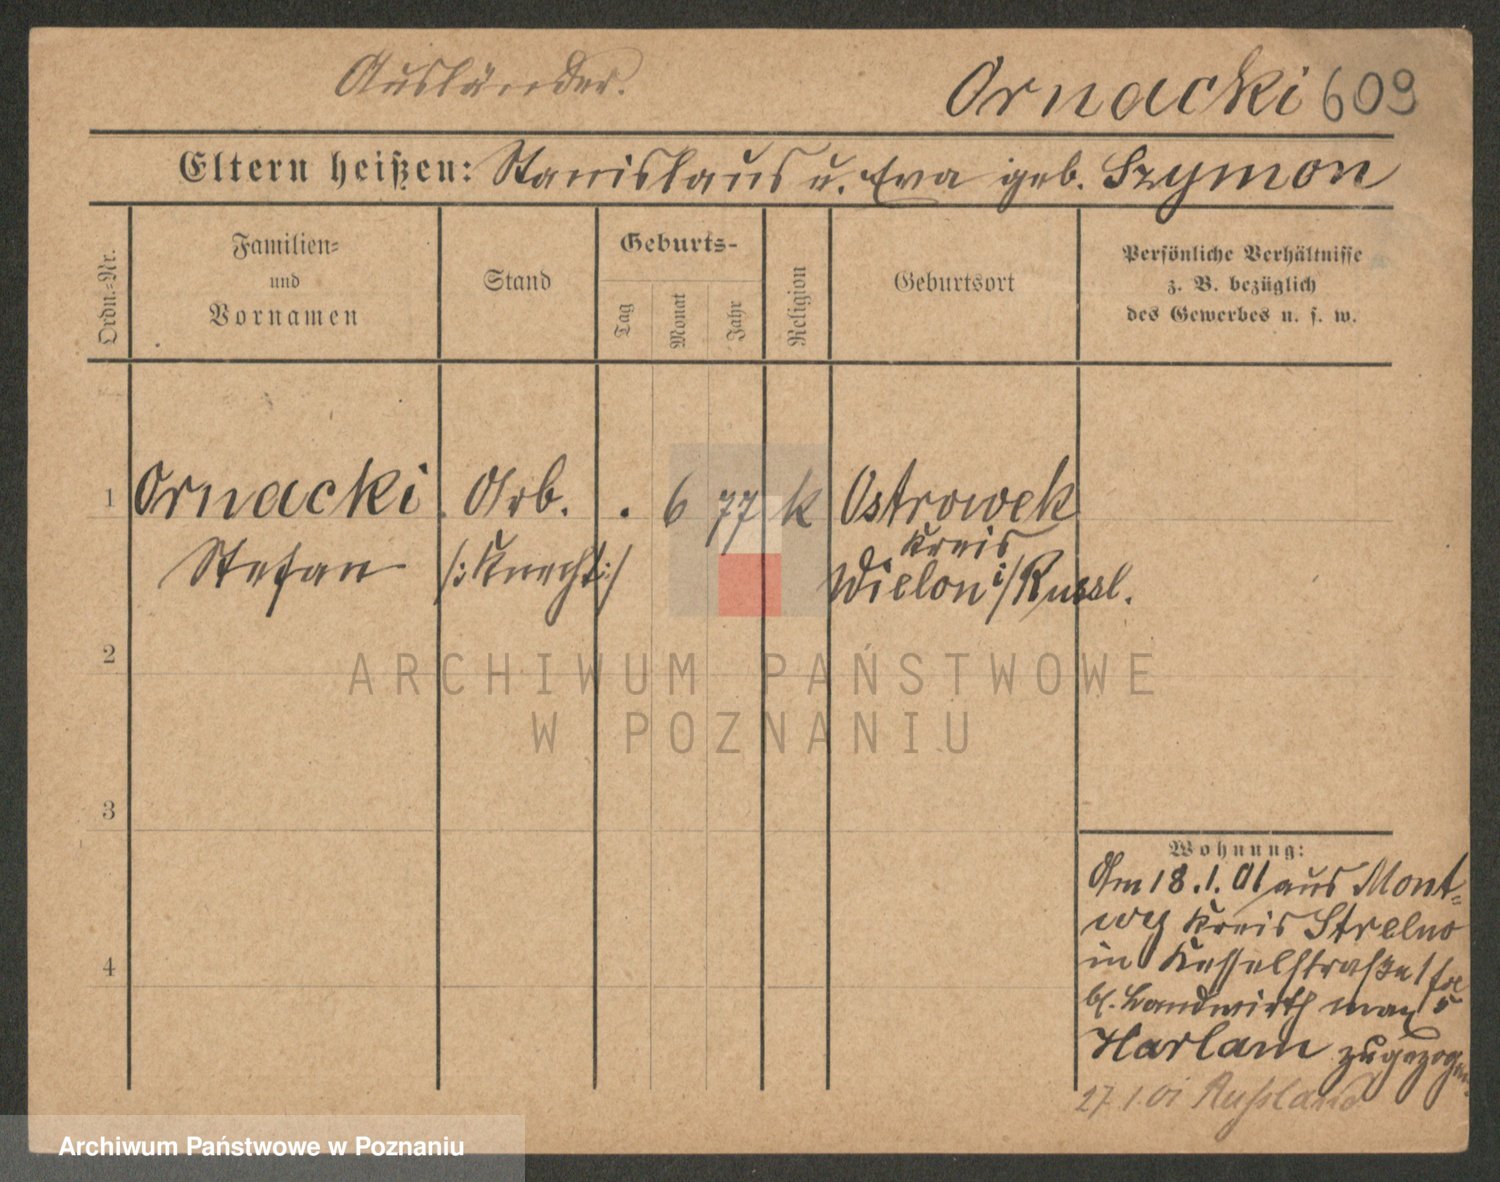 Ausländer.
Ornacki 609
Eltern heißen: Stanislaus u. Eva geb. Szymon
Ordn.-Nr.
Familien-
und
Vornamen
Stand
Geburts-
Tag
Monat
Jahr
Religion
Geburtsort
Persönliche Verhältnisse
z. B. bezüglich
des Gewerbes u. s. w.
1 Ornacki Arb. . 6 77 k Ostrowek
Kreis
Stefan /:Knecht:/ Wielon i/Russl.
2
ARCHIWUM PAŃSTWOWE
W POZNANIU
3
Wohnung:
Am 18.1.01 aus Mont-
wy Kreis Strelno
in Kesselstraße
b/. Landwirth Max
Harlam zugezogen.
4
27.1.01 Russland
Archiwum Państwowe w Poznaniu